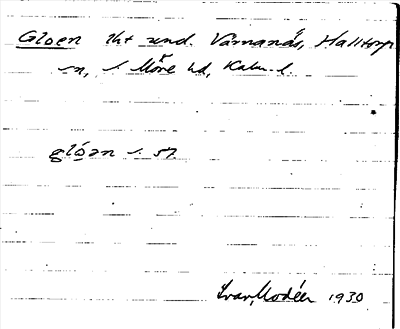 Gloen tht und. Värnanäs, Halltorp
sn, s. Möre hd, Kalm. l.
glóan s. 57.
Ivar Modéer 1930